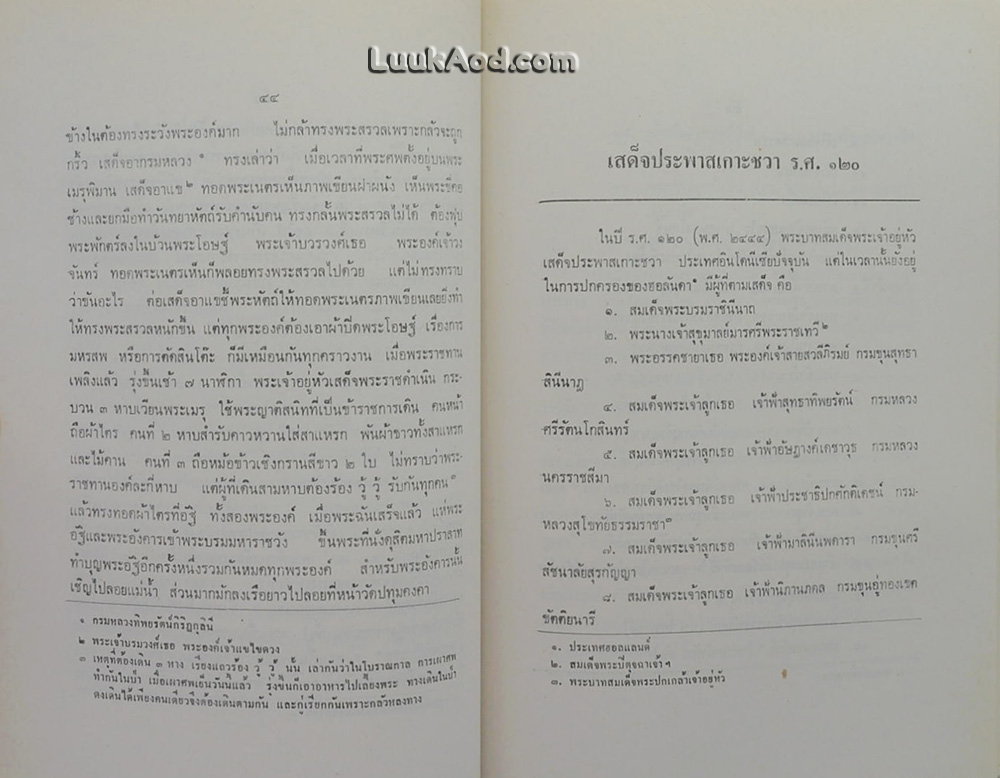 LuukAod.com
๔๔
ข้างในต้องทรงระวังพระองค์มาก ไม่กล้าทรงพระสรวลเพราะกลัวจะถูก
กริ้ว เสด็จอากรมหลวง ๑ ทรงเล่าว่า เมื่อเวลาที่พระศพตั้งอยู่บนพระ
เมรุพิมาน เสด็จอาแข ๒ ทอดพระเนตรเห็นภาพเขียนฝาผนัง เห็นพระขี่คอ
ช้างและยกมือทำวันทยาหัตถ์รับคำนับคน ทรงกลั้นพระสรวลไม่ได้ ต้องฟุบ
พระพักตร์ลงในบ้วนพระโอษฐ์ พระเจ้าบวรวงศ์เธอ พระองค์เจ้าวง
จันทร์ ทอดพระเนตรเห็นก็พลอยทรงพระสรวลไปด้วย แต่ไม่ทรงทราบ
ว่าขันอะไร ต่อเสด็จอาแขชี้พระหัตถ์ให้ทอดพระเนตรภาพเขียนเลยยิ่งทำ
ให้ทรงพระสรวลหนักขึ้น แต่ทุกพระองค์ต้องเอาผ้าปิดพระโอษฐ์ เรื่องการ
มหรสพ หรือการตัดสินโต๊ะ ก็มีเหมือนกันทุกคราวงาน เมื่อพระราชทาน
เพลิงแล้ว รุ่งขึ้นเช้า ๗ นาฬิกา พระเจ้าอยู่หัวเสด็จพระราชดำเนิน กระ-
บวน ๓ หาบเวียนพระเมรุ ใช้พระญาติสนิทที่เป็นข้าราชการเดิน คนหน้า
ถือผ้าไตร คนที่ ๒ หาบสำรับคาวหวานใส่สาแหรก พันผ้าขาวทั้งสาแหรก
และไม้คาน คนที่ ๓ ถือหม้อข้าวเชิงกรานสีขาว ๒ ใบ ไม่ทราบว่าพระ-
ราชทานองค์ละกี่หาบ แต่ผู้ที่เดินสามหาบต้องร้อง วู้ วู้ รับกันทุกคน ๓
แล้วทรงทอดผ้าไตรที่อัฐิ ทั้งสองพระองค์ เมื่อพระฉันเสร็จแล้ว แห่พระ
อัฐิและพระอังคารเข้าพระบรมมหาราชวัง ขึ้นพระที่นั่งดุสิตมหาปราสาท
ทำบุญพระอัฐิอีกครั้งหนึ่งรวมกันหมดทุกพระองค์ สำหรับพระอังคารนั้น
เชิญไปลอยแม่น้ำ ส่วนมากมักลงเรือยาวไปลอยที่หน้าวัดปทุมคงคา
๑ กรมหลวงทิพยรัตน์กิริฏกุลินี
๒ พระเจ้าบรมวงศ์เธอ พระองค์เจ้าแขไขดวง
๓ เหตุที่ต้องเดิน ๓ หาบ เรียงแถวร้อง วู้ วู้ นั้น เล่ากันว่าในโบราณกาล การเผาศพ
ทำกันในป่า เมื่อเผาศพเย็นวันนี้แล้ว รุ่งขึ้นก็เอาอาหารไปเลี้ยงพระ ทางเดินในป่า
ดงเดินได้เพียงคนเดียวจึงต้องเดินตามกัน และกู่เรียกกันเพราะกลัวหลงทาง
เสด็จประพาสเกาะชวา ร.ศ. ๑๒๐
ในปี ร.ศ. ๑๒๐ (พ.ศ. ๒๔๔๔) พระบาทสมเด็จพระเจ้าอยู่หัว
เสด็จประพาสเกาะชวา ประเทศอินโดนีเซียปัจจุบัน แต่ในเวลานั้นยังอยู่
ในการปกครองของฮอลันดา ๑ มีผู้ที่ตามเสด็จ คือ
๑. สมเด็จพระบรมราชินีนาถ
๒. พระนางเจ้าสุขุมาลย์มารศรีพระราชเทวี ๒
๓. พระอรรคชายาเธอ พระองค์เจ้าสายสวลีภิรมย์ กรมขุนสุทธา
สินีนาฏ
๔. สมเด็จพระเจ้าลูกเธอ เจ้าฟ้าสุทธาทิพยรัตน์ กรมหลวง
ศรีรัตนโกสินทร์
๕. สมเด็จพระเจ้าลูกเธอ เจ้าฟ้าอัษฎางค์เดชาวุธ กรมหลวง
นครราชสีมา
๖. สมเด็จพระเจ้าลูกเธอ เจ้าฟ้าประชาธิปกศักดิเดชน์ กรม-
หลวงสุโขทัยธรรมราชา ๓
๗. สมเด็จพระเจ้าลูกเธอ เจ้าฟ้ามาลินีนพดารา กรมขุนศรี
สัชนาลัยสุรกัญญา
๘. สมเด็จพระเจ้าลูกเธอ เจ้าฟ้านิภานภดล กรมขุนอู่ทองเขต
ขัตติยนารี
๑. ประเทศฮอลแลนด์
๒. สมเด็จพระปิตุจฉาเจ้าฯ
๓. พระบาทสมเด็จพระปกเกล้าเจ้าอยู่หัว